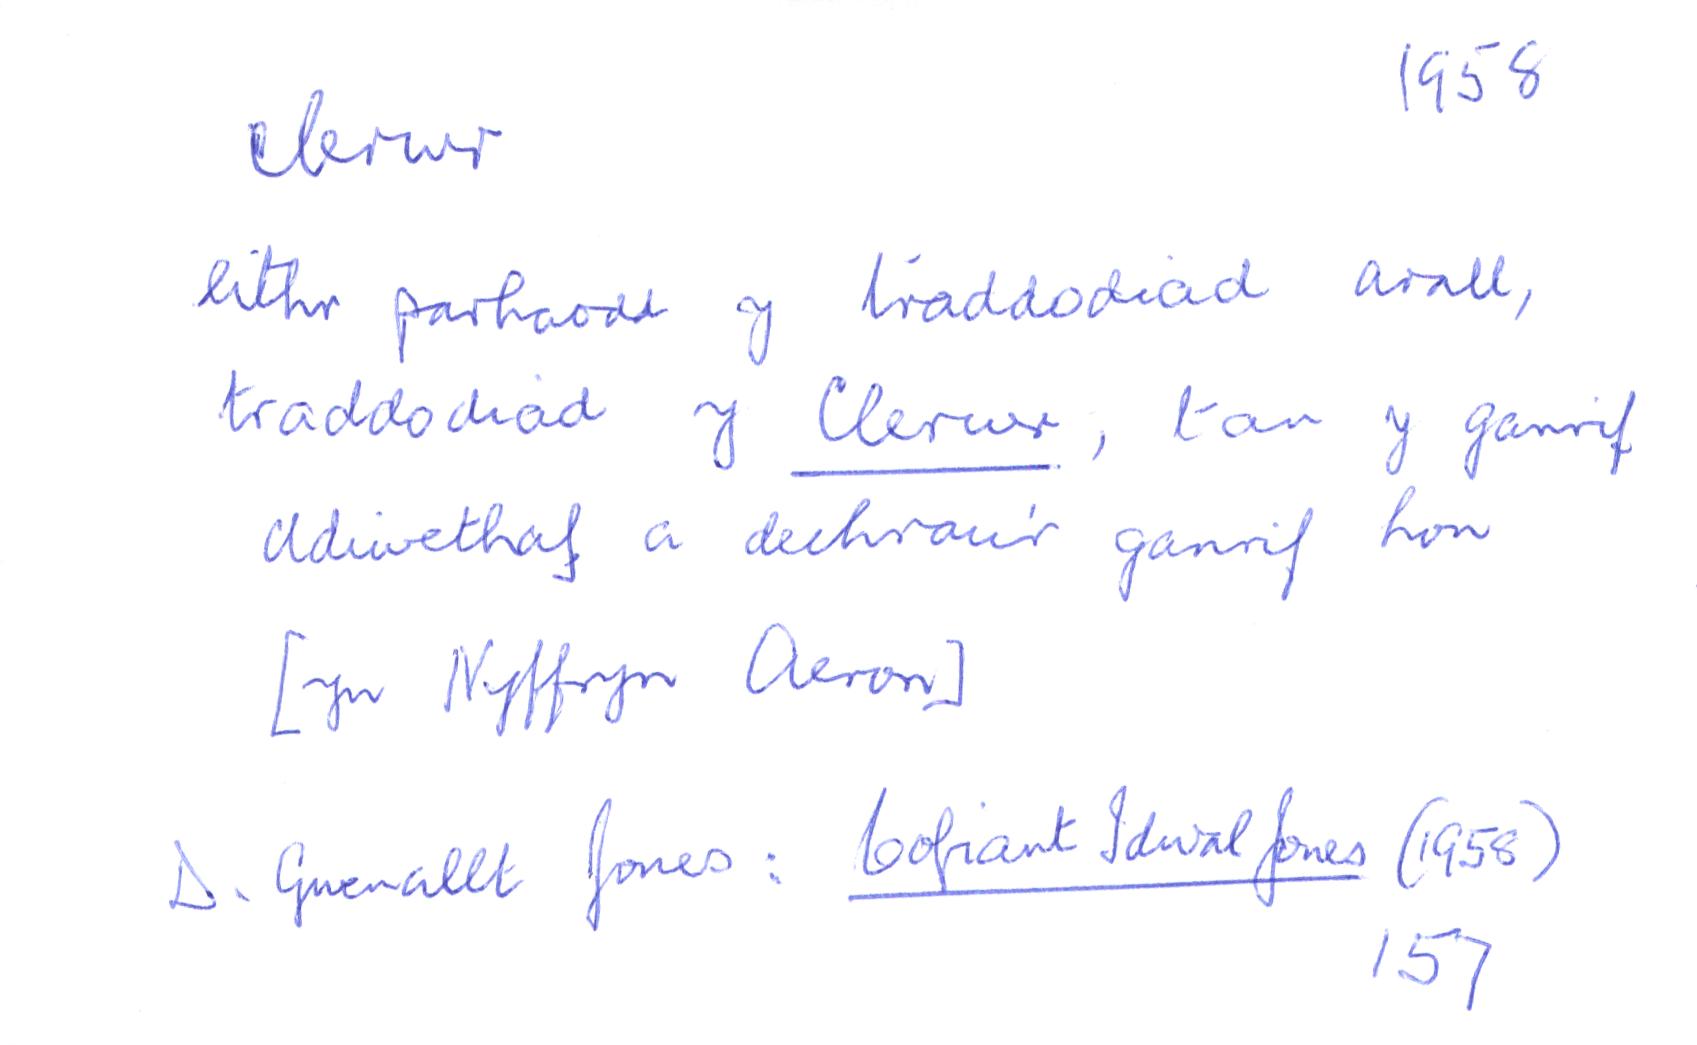 1958
clerwr
eithr parhaodd y traddodiad arall,
traddodiad y Clerwr, tan y ganrif
ddiwethaf a dechrau'r ganrif hon
[yn Nyffryn Aeron]
D. Gwenallt Jones: Cofiant Idwal Jones (1958)
157